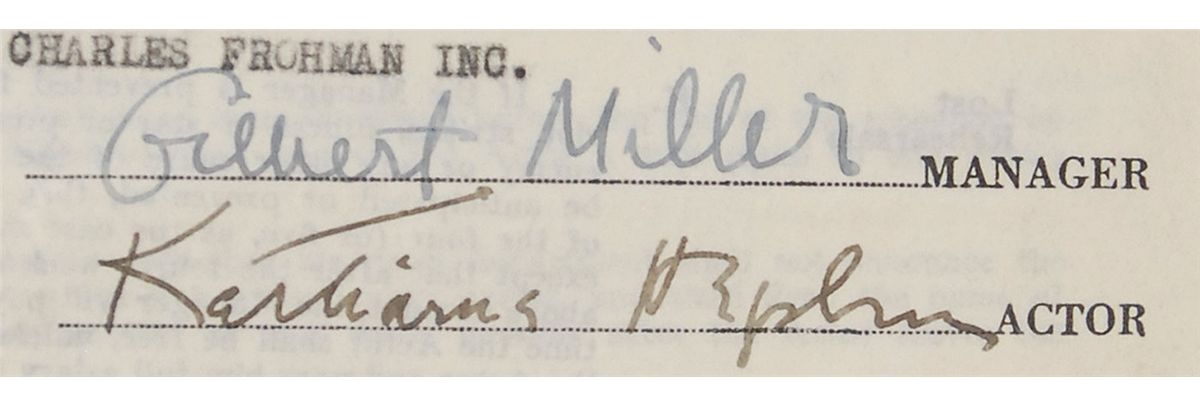 CHARLES FROHMAN INC.
Gilbert Miller
MANAGER
Katharine Hepburn
ACTOR